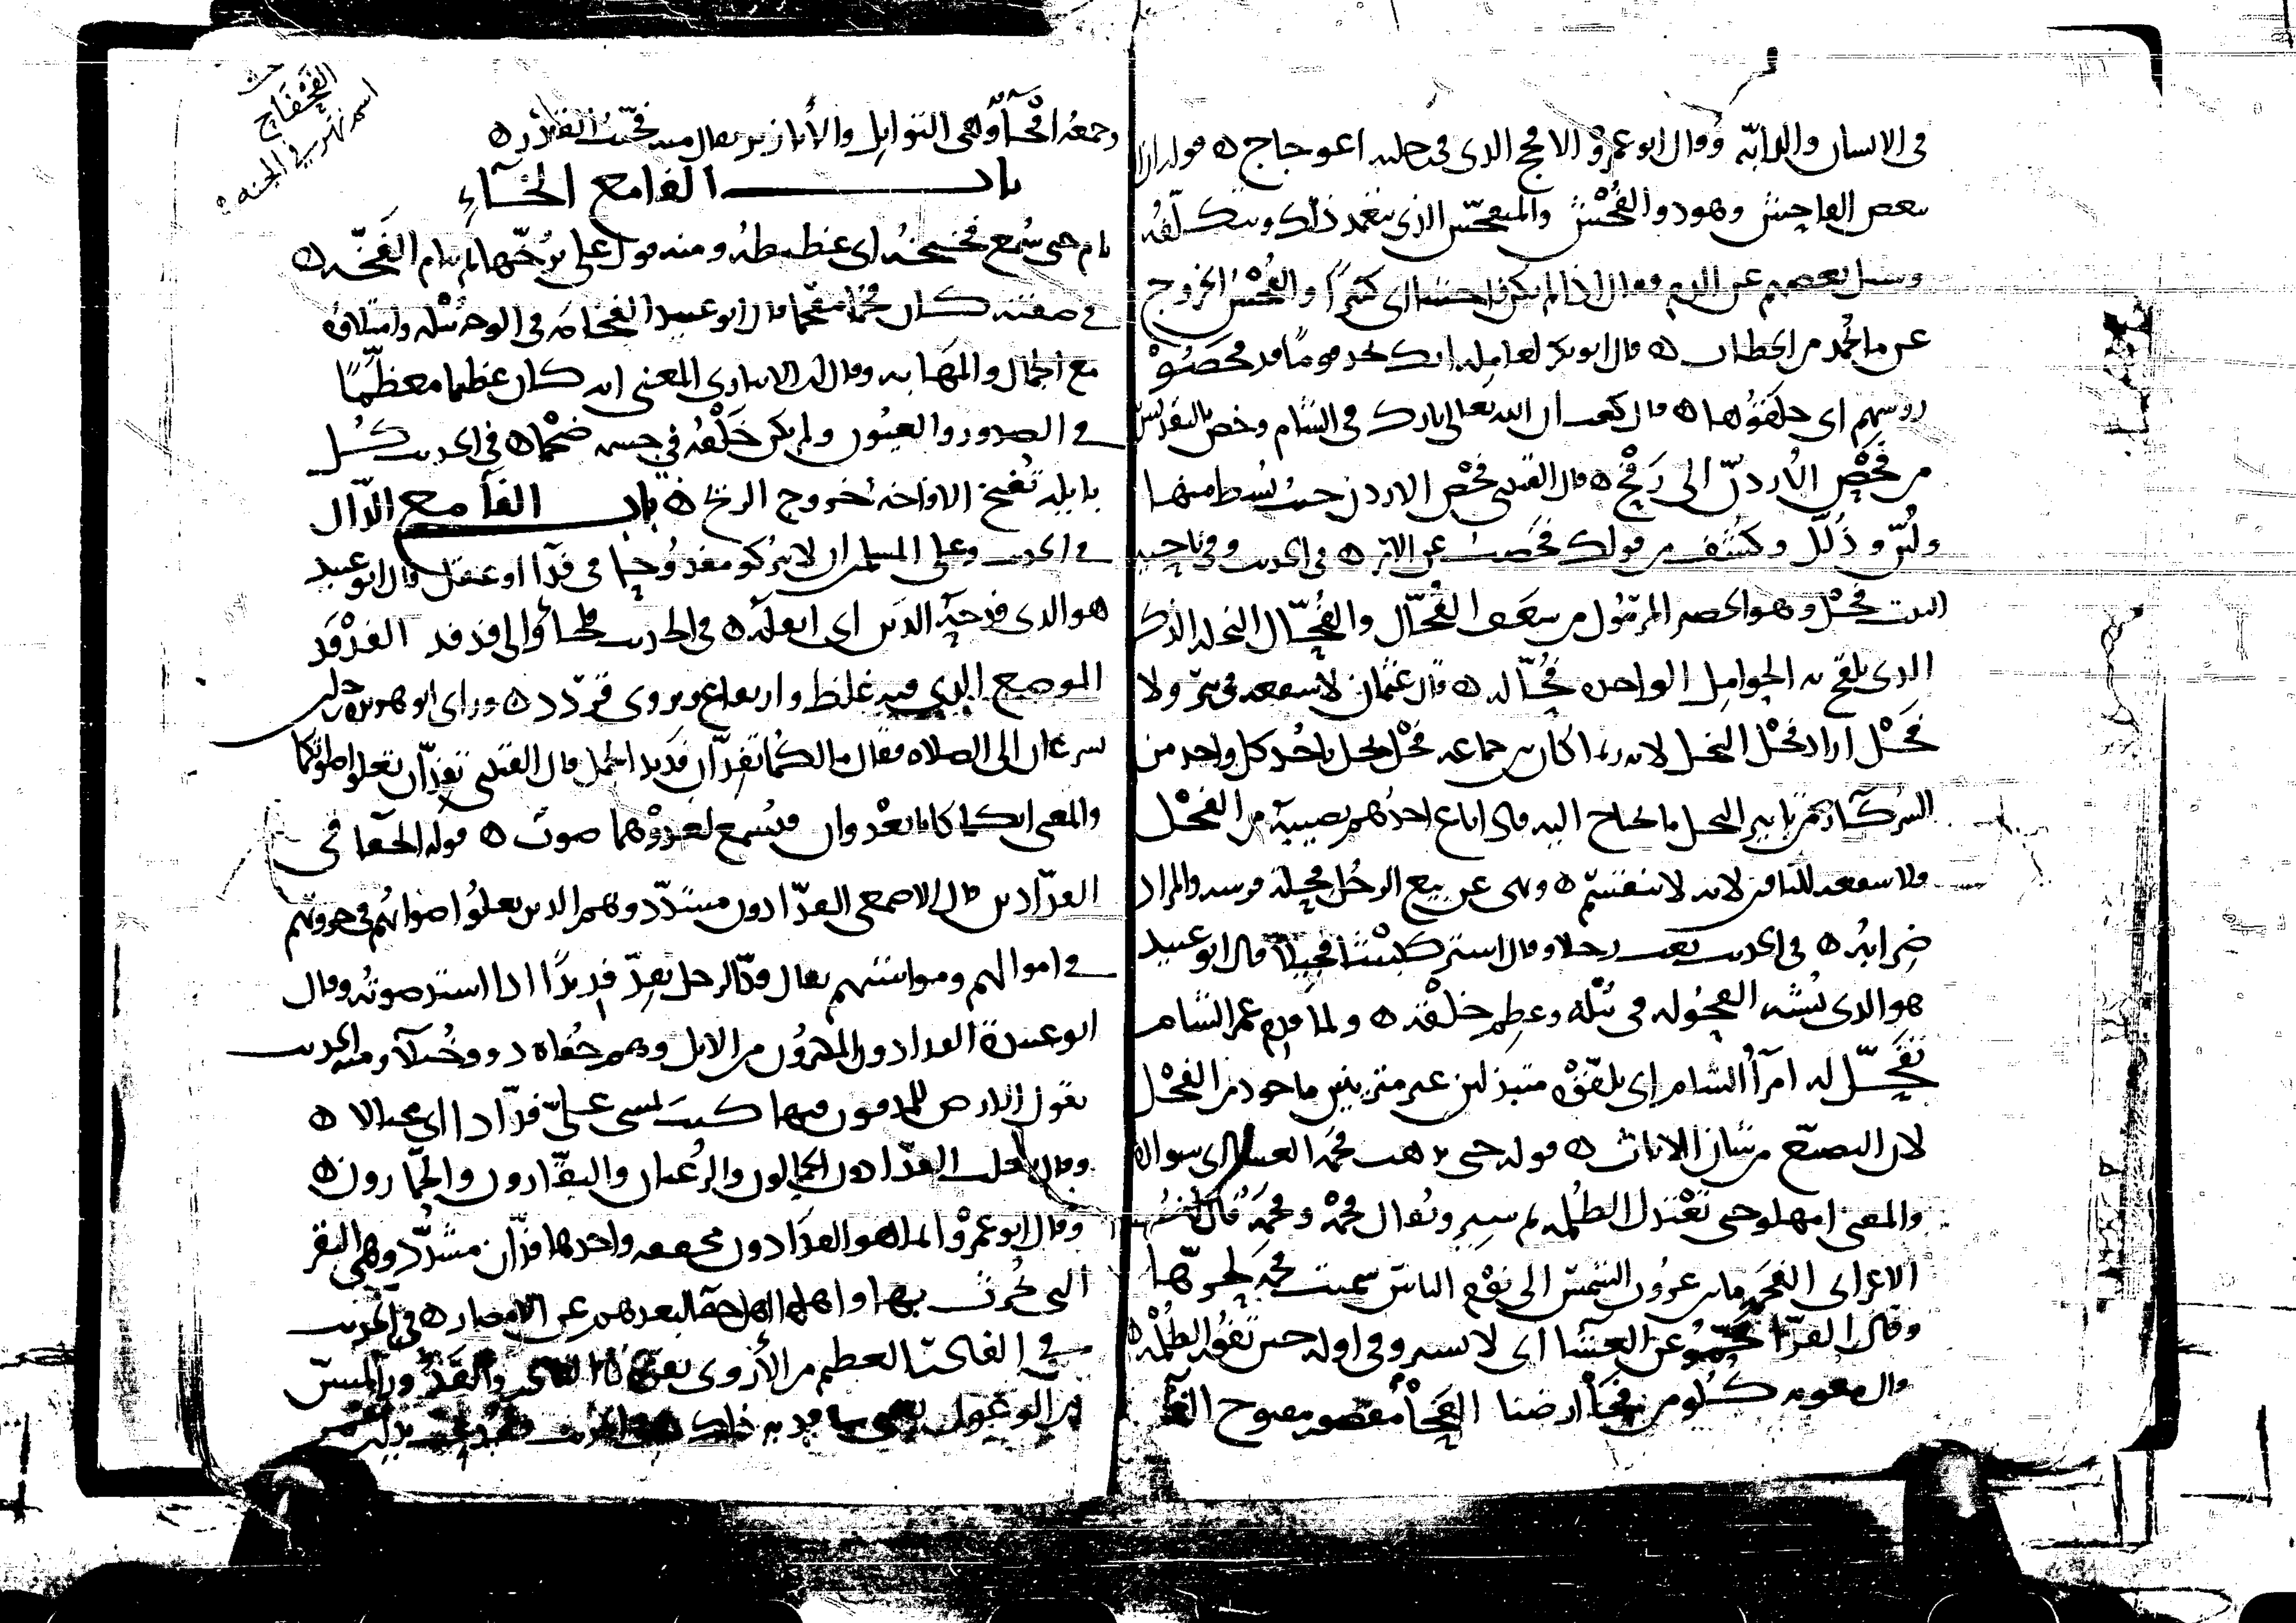 في الانسان والدابة وقال ابو عمرو الافحج الذي في رجليه اعوجاج ه قوله ان الله
يبغض الفاحش وهو ذو الفحش والمتفحش الذي يتعمد ذلك ويتكلفه
وسئل بعضهم عن الدم فقال اذا لم يكن فاحشا اي كثيرا والفحش الخروج
عن ما يحمد من الخطاب ه قال ابو بكر لعامله انك تجد قوما قد فحصوا
روسهم اي حلقوها ه قال كعب ان الله تعالى بارك في الشام وخص بالتقديس
من فحص الأردن الى رفح ه قال القتيبي فحص الاردن حيث بسط منها
ولين وذلل وكشف من قولك فحصت عن الامر ه في الحديث وفي ناحية
البيت فحل وهو الحصير المرمول من سعف الفحال والفحال النخلة الذكر
الذي يلقح به الحوامل الواحدة فحالة ه قال عثمان لا شفعة في بئر ولا
فحل اراد فحل النخل لانه ربما كان بين جماعة فحل نخل ياخذ كل واحد من
الشركاء زمن تابير النخل ما يحتاج اليه فاذا باع احدهم نصيبه من الفحل
فلا شفعة للباقين لانه لا ينقسم ه ونهى عن بيع الرجل فحلة فرسه والمراد
ضرابه ه في الحديث بعث رجلا وقال اشتر كبشا فحيلا قال ابو عبيد
هو الذي يشبه الفحولة في نبله وعظم خلقه ه ولما قدم عمر الشام
تفحل له امرآء الشام اي تلقوه متبذلين غير متزينين ماخوذ من الفحل
لان التصنع من شان الاناث ه قوله حتى تذهب فحمة العشاء اي سواده
والمعنى امهلوا حتى تعتدل الظلمة ثم سيروا ويقال فحمة وفحمة قال ابن
الاعرابي الفحمة ما بين غروب الشمس الى نوم الناس سميت فحمة لحرها
وقال الفرا فحموا عن العشاء اي لا تسيروا في اوله حين تفور الظلمة ه
قال معوية كلوا من فحا ارضنا الفحا مقصور مفتوح الفاء
وجمعه افحآء وهي التوابل والأبازير يقال منه فحيت القدر ه
باب الفا مع الخآء
نام حتى سمع فخيخه اي غطيطه ومنه قول علي يزخها ثم ينام الفخه ه
في صفته كان فخما مفخما قال ابو عبيد الفخامة في الوجه نبله وامتلاؤه
مع الجمال والمهابة وقال ابن الانباري المعنى انه كان عظيما معظما
في الصدور والعيون ولم يكن خلقه في جسمه ضخما ه في الحديث كل
بايلة تفيخ الافاخة خروج الريح ه باب الفا مع الدال
في الحديث وعلى المسلمين ان لا يتركوا مفدوحا في فدآء او عقل قال ابو عبيد
هو الذي فدحه الدين اي اثقله ه في الحديث فلجأوا الى فدفد الفدفد
الموضع الذي فيه غلظ وارتفاع ويروى قردد ه وراى ابو هريرة رجلين
يسرعان الى الصلاة فقال ما لكما تفدان فديد الجمل قال القتيبي تفدان تعلوا اصواتكما
والمعنى انكما كانا يعدوان فيسمع لعدوهما صوت ه قوله الجفا في
الفدادين قال الاصمعي الفدادون مشدد وهم الذين تعلوا اصواتهم في حروثهم
في اموالهم ومواشيهم يقال فد الرجل يفد فديدا اذا اشتد صوته وقال
ابو عبيدة الفدادون المكثرون من الابل وهم جفاة ذووا خيلآء ومنه الحديث
تقول الارض للمدفون فيها كنت تمشي علي فدادا اي مختالا ه
وقال ثعلب الفدادون الجمالون والرعيان والبقارون والحمارون ه
وقال ابو عمرو انما هو الفدادون مخففه واحدها فدان مشدد وهي البقر
التي يحرث بها واهلها اهل جفا لبعدهم عن الامصار ه في الحديث
في الفادر العظيم من الأروى بقرة الفادر والفدور المسن
من الوعول
الفحفاح
اسم نهر في الجنة ه